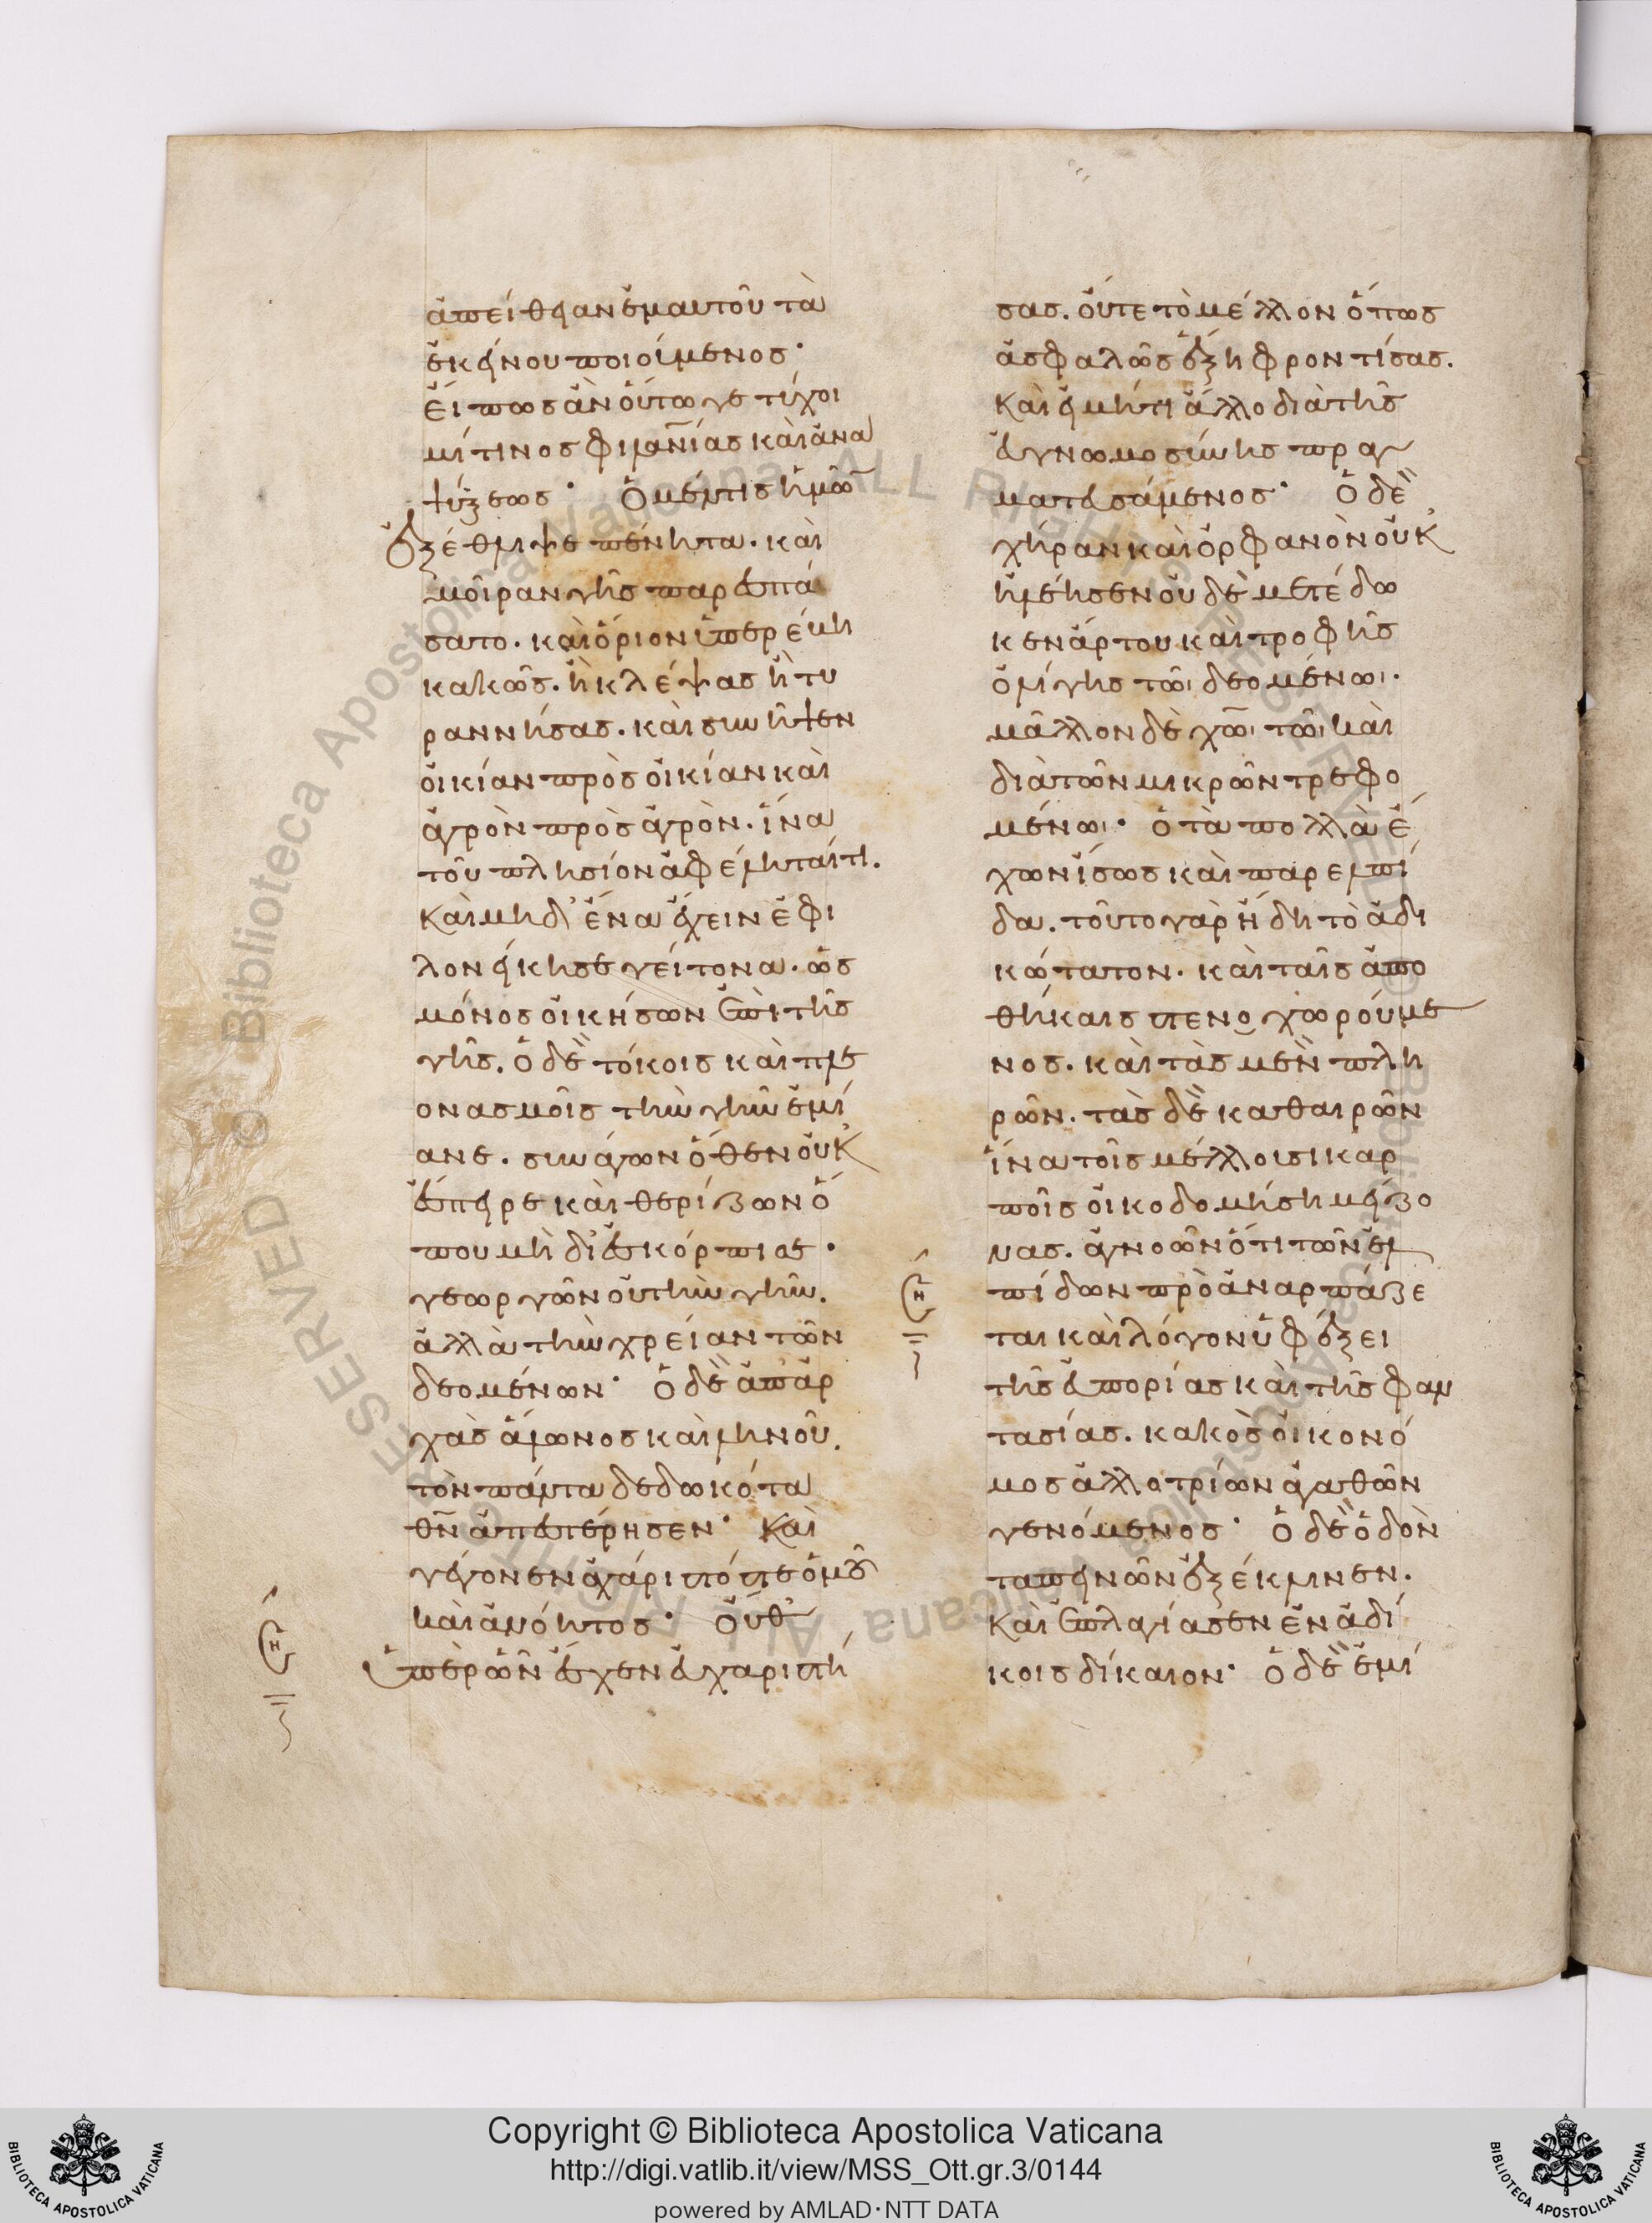 ἀπείθειαν ἐμαυτοῦ τὰ
ἐκείνου ποιούμενος·
εἴ πως ἂν οὕτω γε τύχοι
μί τινος φιμανίας καὶ ἀνα
ψύξεως· Ὁ μέν τις ἡμῶ̅
ἐξέθλιψε πένητα. καὶ
μοῖραν γῆς παρεσπά
σατο. καὶ ὅριον ὑπερέβη
κακῶς. ἢ κλέψας ἢ τυ
ραννήσας. καὶ συνῆψεν
οἰκίαν πρὸς οἰκίαν καὶ
ἀγρὸν πρὸς ἀγρὸν. ἵνα
τοῦ πλησίον ἀφέληταί τι.
καὶ μηδ' ἕνα ἔχειν ἐφι
λονείκησε γείτονα. ὡς
μόνος οἰκήσων ἐπὶ τῆς
γῆς. ὁ δὲ τόκοις καὶ πλε
ονασμοῖς τὴν γῆν ἐμί
ανε. συνάγων ὅθεν οὐκ
ἔσπειρε καὶ θερίζων ὅ
που μὴ διεσκόρπισε·
γεωργῶν οὐ τὴν γῆν.
ἀλλὰ τὴν χρείαν τῶν
δεομένων· Ὁ δὲ ἀπαρ
χὰς ἅλωνος καὶ ληνοῦ.
τὸν πάντα δεδωκότα
θ̅ν̅ ἀπεστέρησεν· Καὶ
γέγονεν ἀχάριστός τε ὁμοῦ
καὶ ἀνόητος· Οὔθ'
ὑπὲρ ὧν ἔσχεν εὐχαριστή
σας. οὔτε τὸ μέλλον ὅπως
ἀσφαλῶς ἕξῃ φροντίσας.
καὶ εἰ μήτι ἄλλο διὰ τῆς
εὐγνωμοσύνης πραγ
ματευσάμενος· Ὁ δὲ
χήραν καὶ ὀρφανὸν οὐκ
ἠλέησεν οὐδὲ μετέδω
κεν ἄρτου καὶ τροφῆς
ὀλίγης τῶι δεομένωι.
μᾶλλον δὲ χ̅ω̅ι τῶι καὶ
διὰ τῶν μικρῶν τρεφο
μένωι· ὁ τὰ πολλὰ ἔ
χων ἴσως καὶ παρ' ἐλπί
δα. τοῦτο γὰρ ἤδη τὸ ἀδι
κώτατον. καὶ ταῖς ἀπο
θήκαις στενοχωρούμε
νος. καὶ τὰς μὲν πλη
ρῶν. τὰς δὲ καθαιρῶν
ἵνα τοῖς μέλλουσι καρ
ποῖς οἰκοδομήσῃ μείζο
νας. ἀγνοῶν ὅτι τῶν ἐλ
πίδων πρὸ ἀναρπάζε
ται καὶ λόγον ὑφέξει
τῆς εὐπορίας καὶ τῆς φαν
τασίας. κακὸς οἰκονό
μος ἀλλοτρίων ἀγαθῶν
γενόμενος· Ὁ δὲ ὁδὸν
ταπεινῶν ἐξέκλινεν.
καὶ ἐπλαγίασεν ἐν ἀδί
κοις δίκαιον· Ὁ δὲ ἐμί
Copyright © Biblioteca Apostolica Vaticana
http://digi.vatlib.it/view/MSS_Ott.gr.3/0144
powered by AMLAD·NTT DATA
BIBLIOTECA APOSTOLICA VATICANA
BIBLIOTECA APOSTOLICA VATICANA